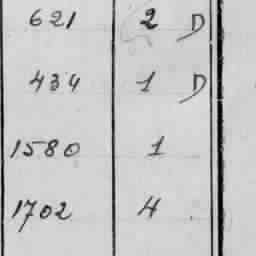 621 2 D
434 1 D
1580 1
1702 4